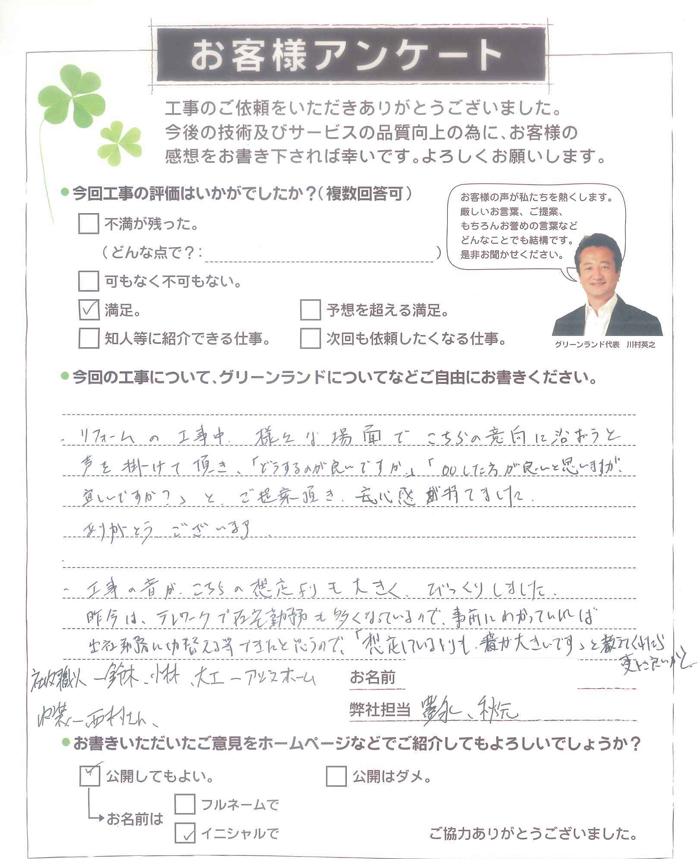 お客様アンケート
工事のご依頼をいただきありがとうございました。
今後の技術及びサービスの品質向上の為に、お客様の
感想をお書き下されば幸いです。よろしくお願いします。
●今回工事の評価はいかがでしたか？（複数回答可）
不満が残った。
（どんな点で？：　）
可もなく不可もない。
満足。
予想を超える満足。
知人等に紹介できる仕事。
次回も依頼したくなる仕事。
お客様の声が私たちを熱くします。
厳しいお言葉、ご提案、
もちろんお誉めの言葉など
どんなことでも結構です。
是非お聞かせください。
グリーンランド代表　川村英之
●今回の工事について、グリーンランドについてなどご自由にお書きください。
・リフォームの工事中、様々な場面でこちらの意向に沿おうと
声を掛けて頂き、「どうするのが良いですか。」「〇〇した方が良いと思いますが、
宜しいですか？」と、ご提案頂き、安心感が持てました。
ありがとうございます。
・工事の音が、こちらの想定よりも大きく、びっくりしました。
昨今は、テレワークで在宅勤務も多くなっているので、事前にわかっていれば
出社勤務に切替える等できたと思うので、「想定しているよりも、音が大きいです」と教えてくれたら
更に良いかと。
職人 ー 鈴木、小林、大工 ー アリスホーム
内装 ー 西村さん、
お名前
弊社担当 豊永、秋元
●お書きいただいたご意見をホームページなどでご紹介してもよろしいでしょうか？
公開してもよい。
公開はダメ。
お名前は
フルネームで
イニシャルで
ご協力ありがとうございました。